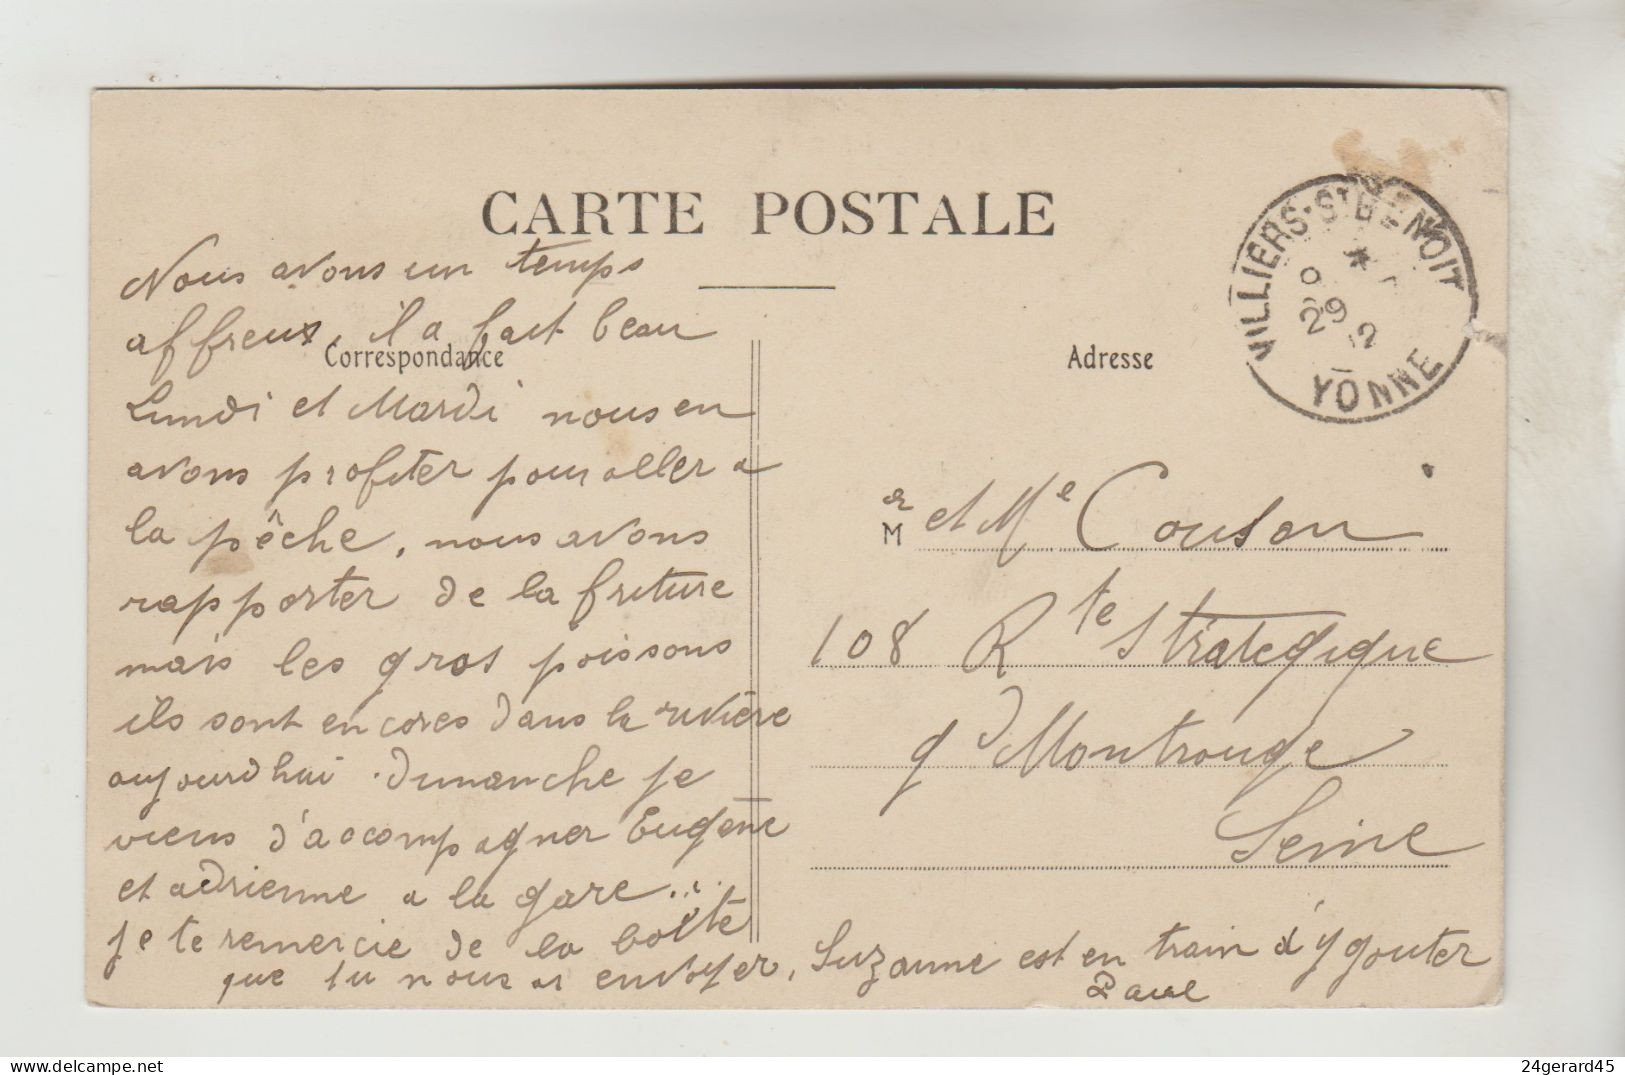 CARTE POSTALE
Correspondance
Adresse
VILLIERS-ST BENOIT
*
29
12
YONNE
Nous avons un temps
affreux, il a fait beau
Lundi et Mardi nous en
avons profiter pour aller a
la pêche, nous avons
rapporter de la friture
mais les gros poissons
ils sont encores dans la rivière
aujourd'hui Dimanche je
viens d'accompagner Eugène
et adrienne a la gare...
je te remercie de la boite
que tu nous as envoyer, Suzanne est en train d'y gouter
Paul
M er et Me Couson
108 Rte Stratégique
gd Montrouge
Seine
delcampe.net
24gerard45